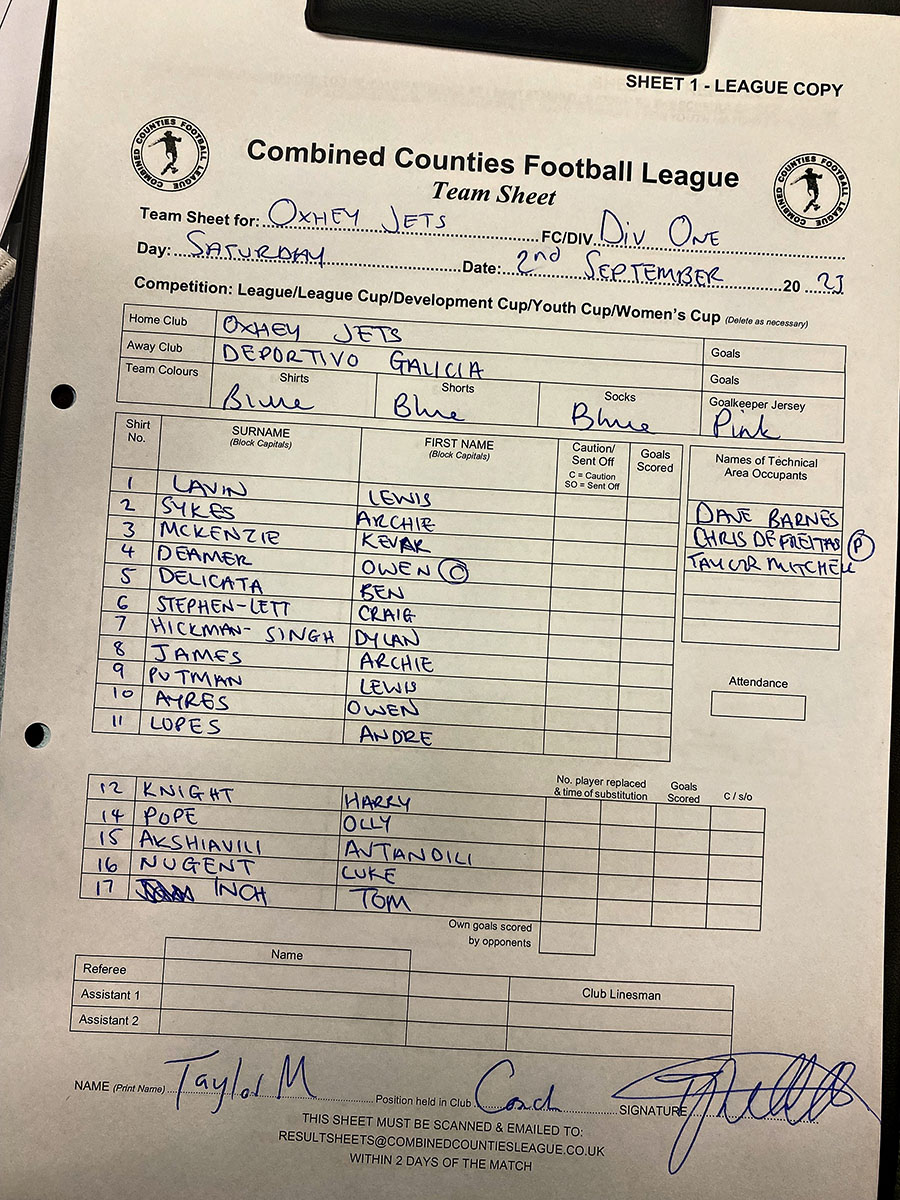 SHEET 1 - LEAGUE COPY
COMBINED COUNTIES FOOTBALL LEAGUE
Combined Counties Football League
COMBINED COUNTIES FOOTBALL LEAGUE
Team Sheet
Team Sheet for: OXHEY JETS FC/DIV DIV ONE
Day: SATURDAY Date: 2nd SEPTEMBER 20 23
Competition: League/League Cup/Development Cup/Youth Cup/Women's Cup (Delete as necessary)
Home Club OXHEY JETS Goals
Away Club DEPORTIVO GALICIA Goals
Team Colours Shirts Shorts Socks Goalkeeper Jersey
Blue Blue Blue Pink
Shirt No. SURNAME (Block Capitals) FIRST NAME (Block Capitals) Caution/ Sent Off C = Caution SO = Sent Off Goals Scored Names of Technical Area Occupants
1 LAVIN LEWIS
2 SYKES ARCHIE DAVE BARNES
3 MCKENZIE KEVAR CHRIS DE FREITAS (P)
4 DEAMER OWEN (C) TAYLOR MITCHELL
5 DELICATA BEN
6 STEPHEN-LETT CRAIG
7 HICKMAN-SINGH DYLAN
8 JAMES ARCHIE
9 PUTMAN LEWIS
10 AYRES OWEN
11 LOPES ANDRE
Attendance
No. player replaced & time of substitution Goals Scored C / s/o
12 KNIGHT HARRY
14 POPE OLLY
15 AKSHIAVILI AVTANDILI
16 NUGENT LUKE
17 INCH TOM
Own goals scored by opponents
Name
Referee
Assistant 1 Club Linesman
Assistant 2
NAME (Print Name) Taylor M Position held in Club Coach SIGNATURE
THIS SHEET MUST BE SCANNED & EMAILED TO:
RESULTSHEETS@COMBINEDCOUNTIESLEAGUE.CO.UK
WITHIN 2 DAYS OF THE MATCH